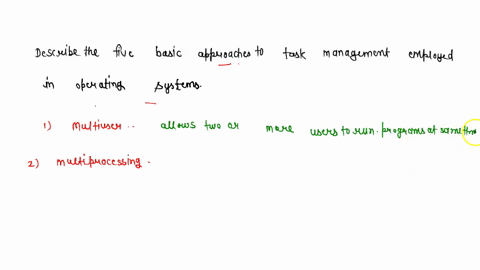 Describe the five basic approaches to task management employed
in operating systems.
1) Multiuser .. allows two or more users to run. programs at same time
2) multiprocessing .